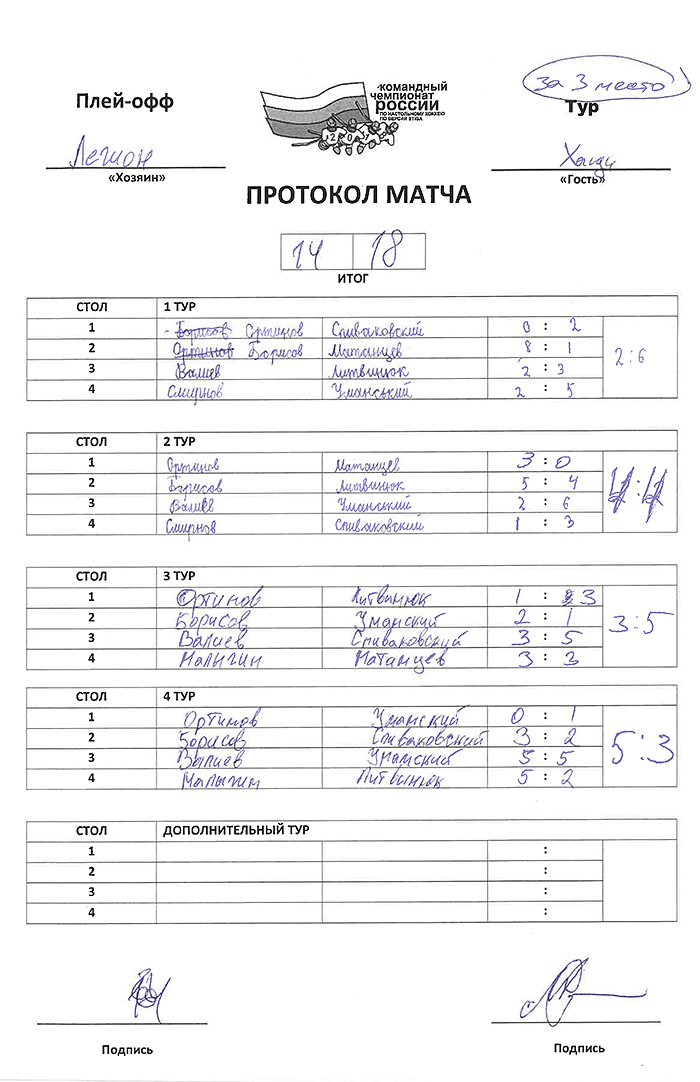 за 3 место
Плей-офф
Тур
КОМАНДНЫЙ
ЧЕМПИОНАТ
РОССИИ
ПО НАСТОЛЬНОМУ ХОККЕЮ
ПО ВЕРСИИ
Легион
«Хозяин»
«Гость»
ПРОТОКОЛ МАТЧА
14 18
ИТОГ
СТОЛ 1 ТУР
1 Борисов Ортинов Спиваковский 0 : 2
2 Ортинов Борисов Матанцев 8 : 1
3 Валиев Литвинюк 2 : 3
4 Смирнов Уманський 2 : 5
2:6
СТОЛ 2 ТУР
1 Ортинов Матанцев 3 : 0
2 Борисов Литвинюк 5 : 4
3 Валиев Уманский 2 : 6
4 Смирнов Спиваковский 1 : 3
4:4
СТОЛ 3 ТУР
1 Ортинов Литвинюк 1 : 3
2 Борисов Уманский 2 : 1
3 Валиев Спиваковский 3 : 5
4 Малыгин Матанцев 3 : 3
3:5
СТОЛ 4 ТУР
1 Ортинов Уманский 0 : 1
2 Борисов Спиваковский 3 : 2
3 Валиев Уманский 5 : 5
4 Малыгин Литвинюк 5 : 2
5:3
СТОЛ ДОПОЛНИТЕЛЬНЫЙ ТУР
1 :
2 :
3 :
4 :
Подпись
Подпись